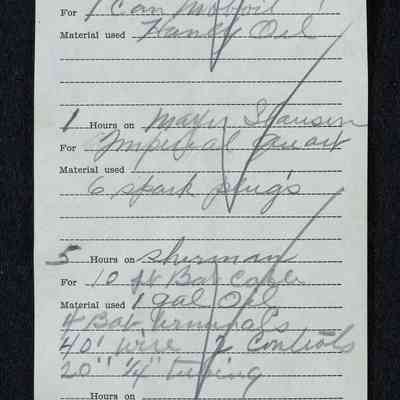 For 1 Can Moboil
Material used Handy Oil
1 Hours on Mayr Slausen
For Imperial Quart
Material used
6 spark plug's
5 Hours on Sherman
For 10 ft Bat Cable
Material used 1 gal Oil
4 Bat terminals
40' wire 2 Controls
20" 1/4" tubing
Hours on